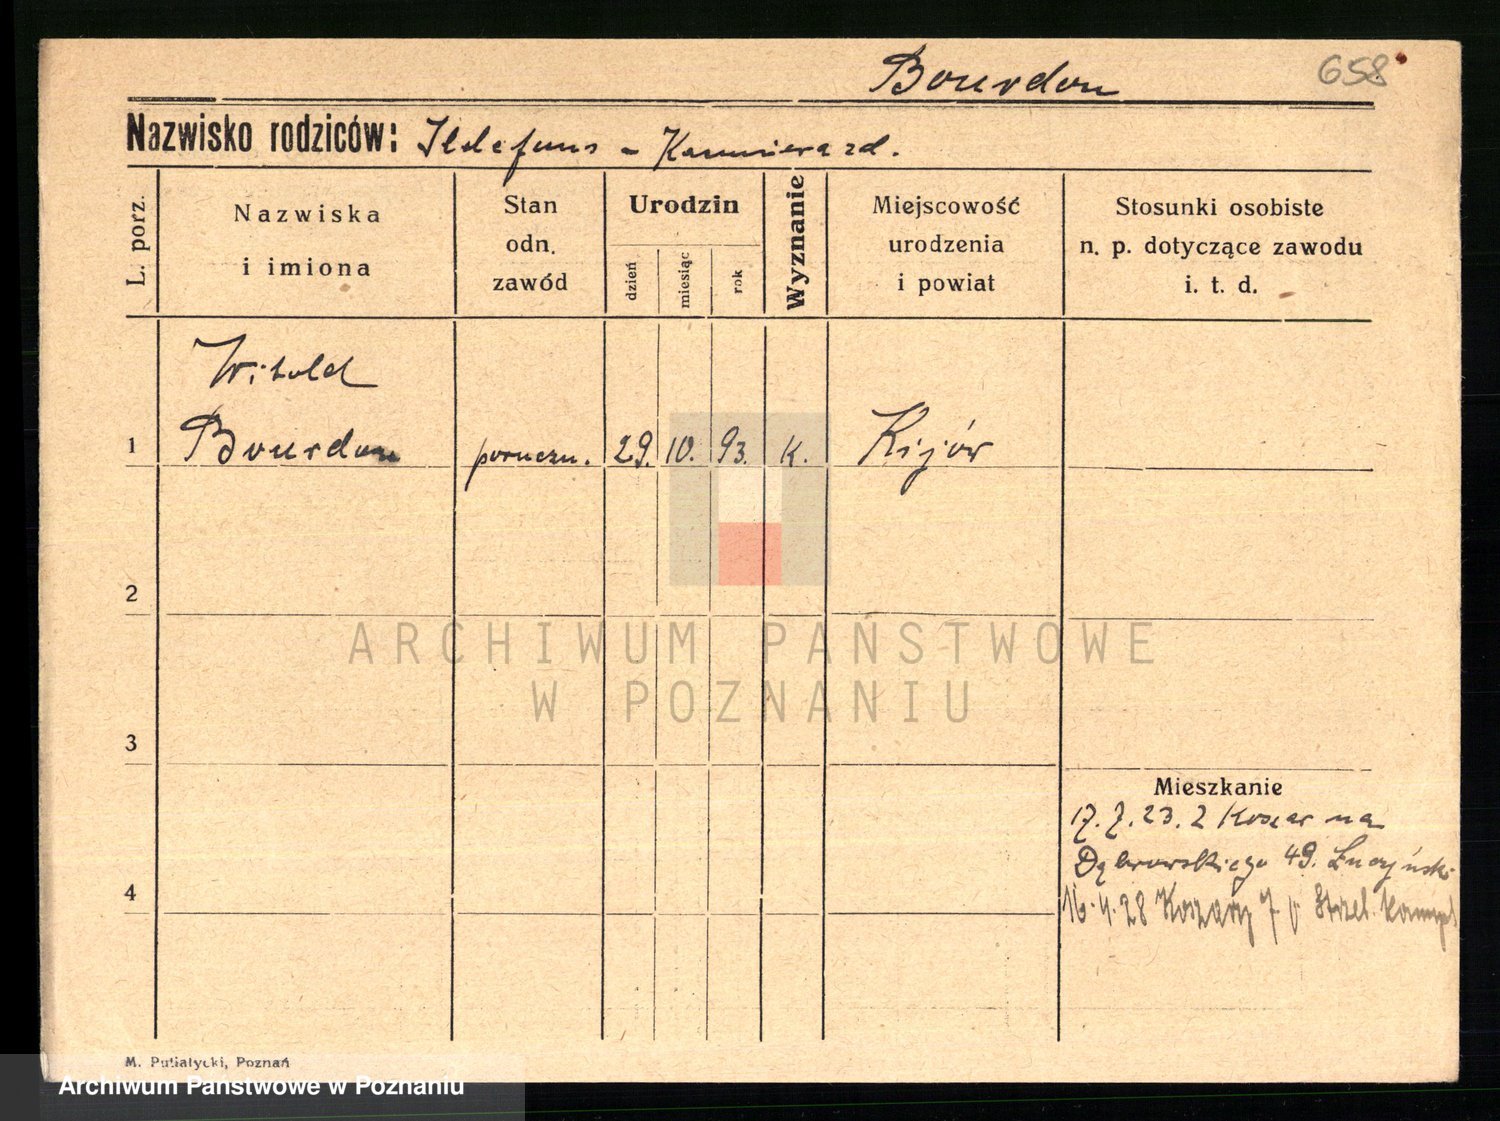 Bourdon
658
Nazwisko rodziców: Ildefons - Kazimiera zd.
L. porz.
Nazwiska
i imiona
Stan
odn.
zawód
Urodzin
dzień
miesiąc
rok
Wyznanie
Miejscowość
urodzenia
i powiat
Stosunki osobiste
n. p. dotyczące zawodu
i. t. d.
Witold
1 Bourdon poruczn. 29. 10. 93. K. Kijów
2
3
4
Mieszkanie
17. 7. 23. Z Koszar na
Dąbrowskiego 49. Łuczyński
16.4.28 Koszary 7 Strzel.
ARCHIWUM PAŃSTWOWE
W POZNANIU
M. Putiatycki, Poznań
Archiwum Państwowe w Poznaniu